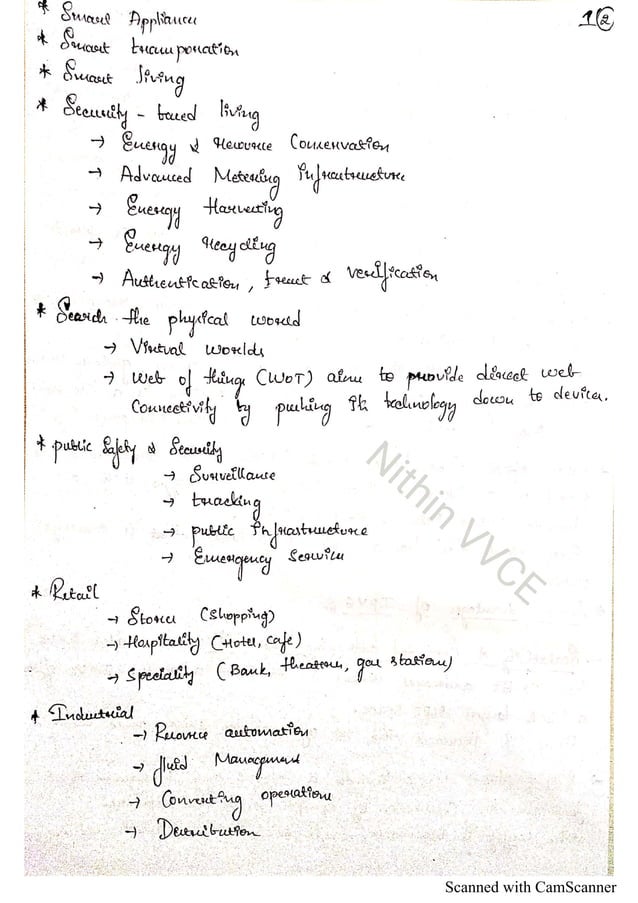 * Smart Appliances 1②
* Smart transportation
* Smart living
* Security - based living
→ Energy & Resource Conservation
→ Advanced Metering Infrastructure
→ Energy Harvesting
→ Energy Recycling
→ Authentication, trust & verification
* Search the physical world
→ Virtual worlds
→ Web of things (WoT) aims to provide direct web
Connectivity by pushing its technology down to devices.
* public Safety & Security
→ Surveillance
→ tracking
→ public Infrastructure
→ Emergency Services
* Retail
→ Stores (Shopping)
→ Hospitality (Hotel, cafe)
→ Speciality (Bank, theatres, gas stations)
* Industrial
→ Resource automation
→ fluid Management
→ Converting operations
→ Distribution
Nithin VVCE
Scanned with CamScanner